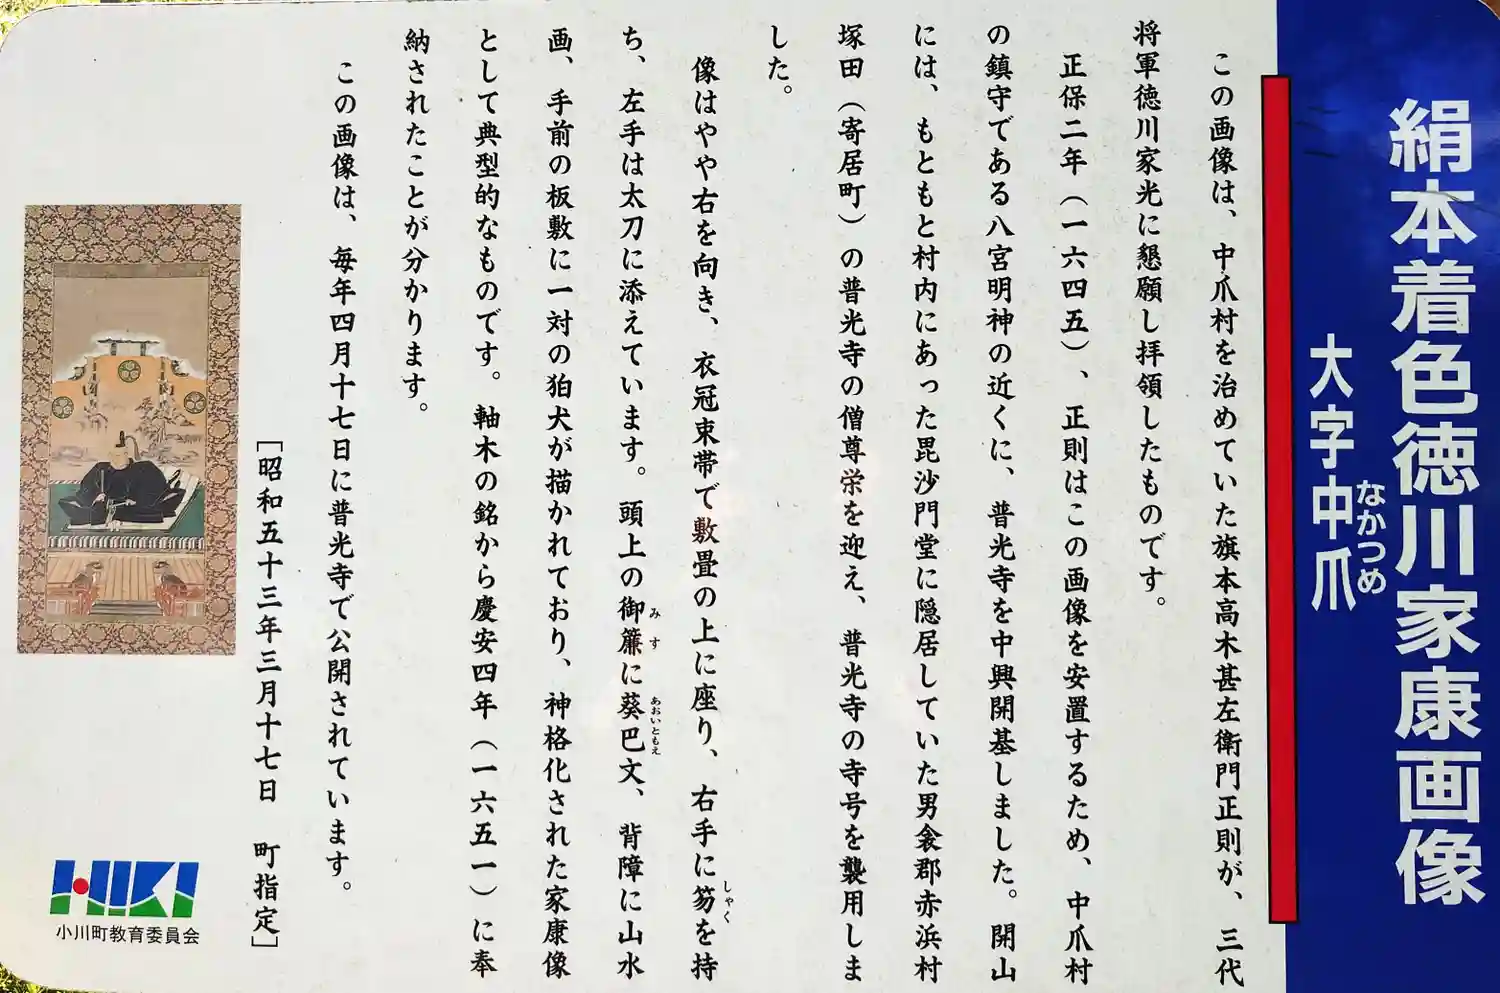 絹本着色徳川家康画像
大字中爪
なかつめ
この画像は、中爪村を治めていた旗本高木甚左衛門正則が、三代
将軍徳川家光に懇願し拝領したものです。
正保二年（一六四五）、正則はこの画像を安置するため、中爪村
の鎮守である八宮明神の近くに、普光寺を中興開基しました。開山
には、もともと村内にあった毘沙門堂に隠居していた男衾郡赤浜村
塚田（寄居町）の普光寺の僧尊栄を迎え、普光寺の寺号を襲用しま
した。
像はやや右を向き、衣冠束帯で敷畳の上に座り、右手に笏を持
しゃく
ち、左手は太刀に添えています。頭上の御簾に葵巴文、背障に山水
みす
あおいともえ
画、手前の板敷に一対の狛犬が描かれており、神格化された家康像
として典型的なものです。軸木の銘から慶安四年（一六五一）に奉
納されたことが分かります。
この画像は、毎年四月十七日に普光寺で公開されています。
［昭和五十三年三月十七日　町指定］
HIKI
小川町教育委員会